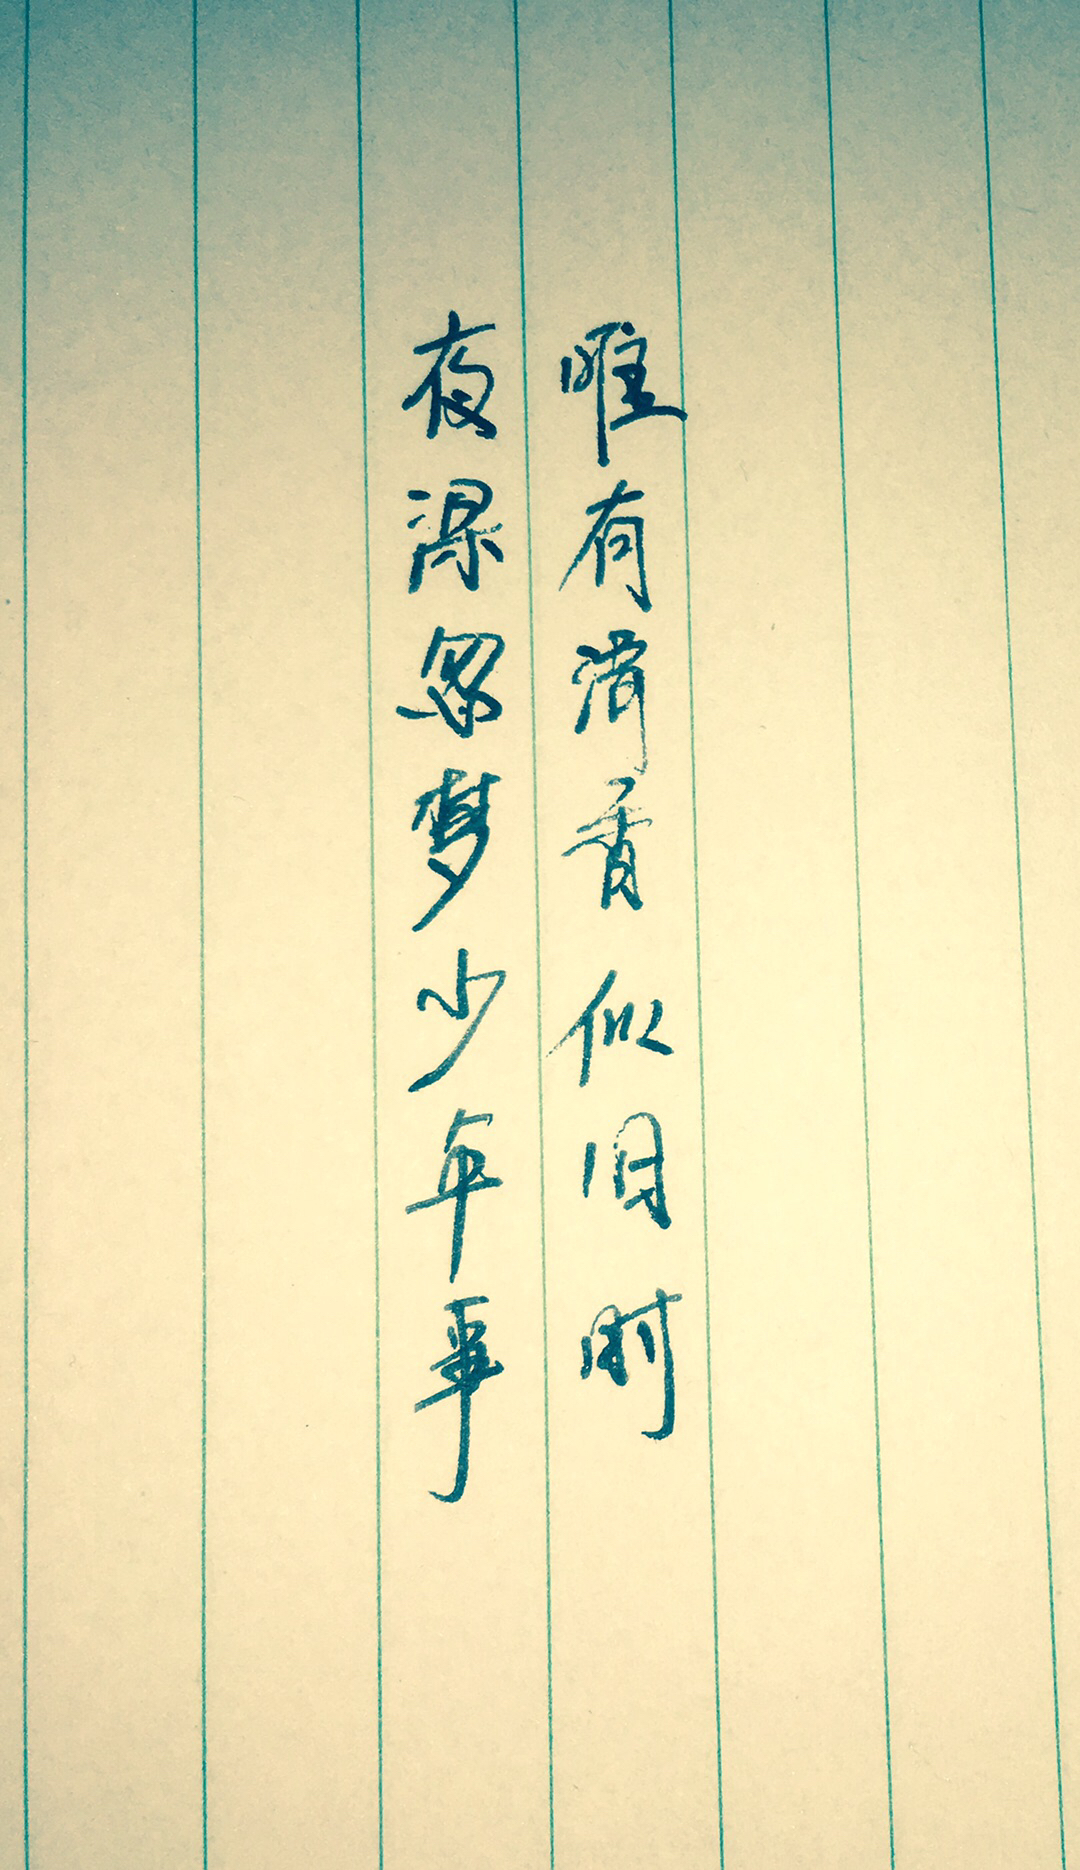 唯有清香似旧时
夜深忽梦少年事